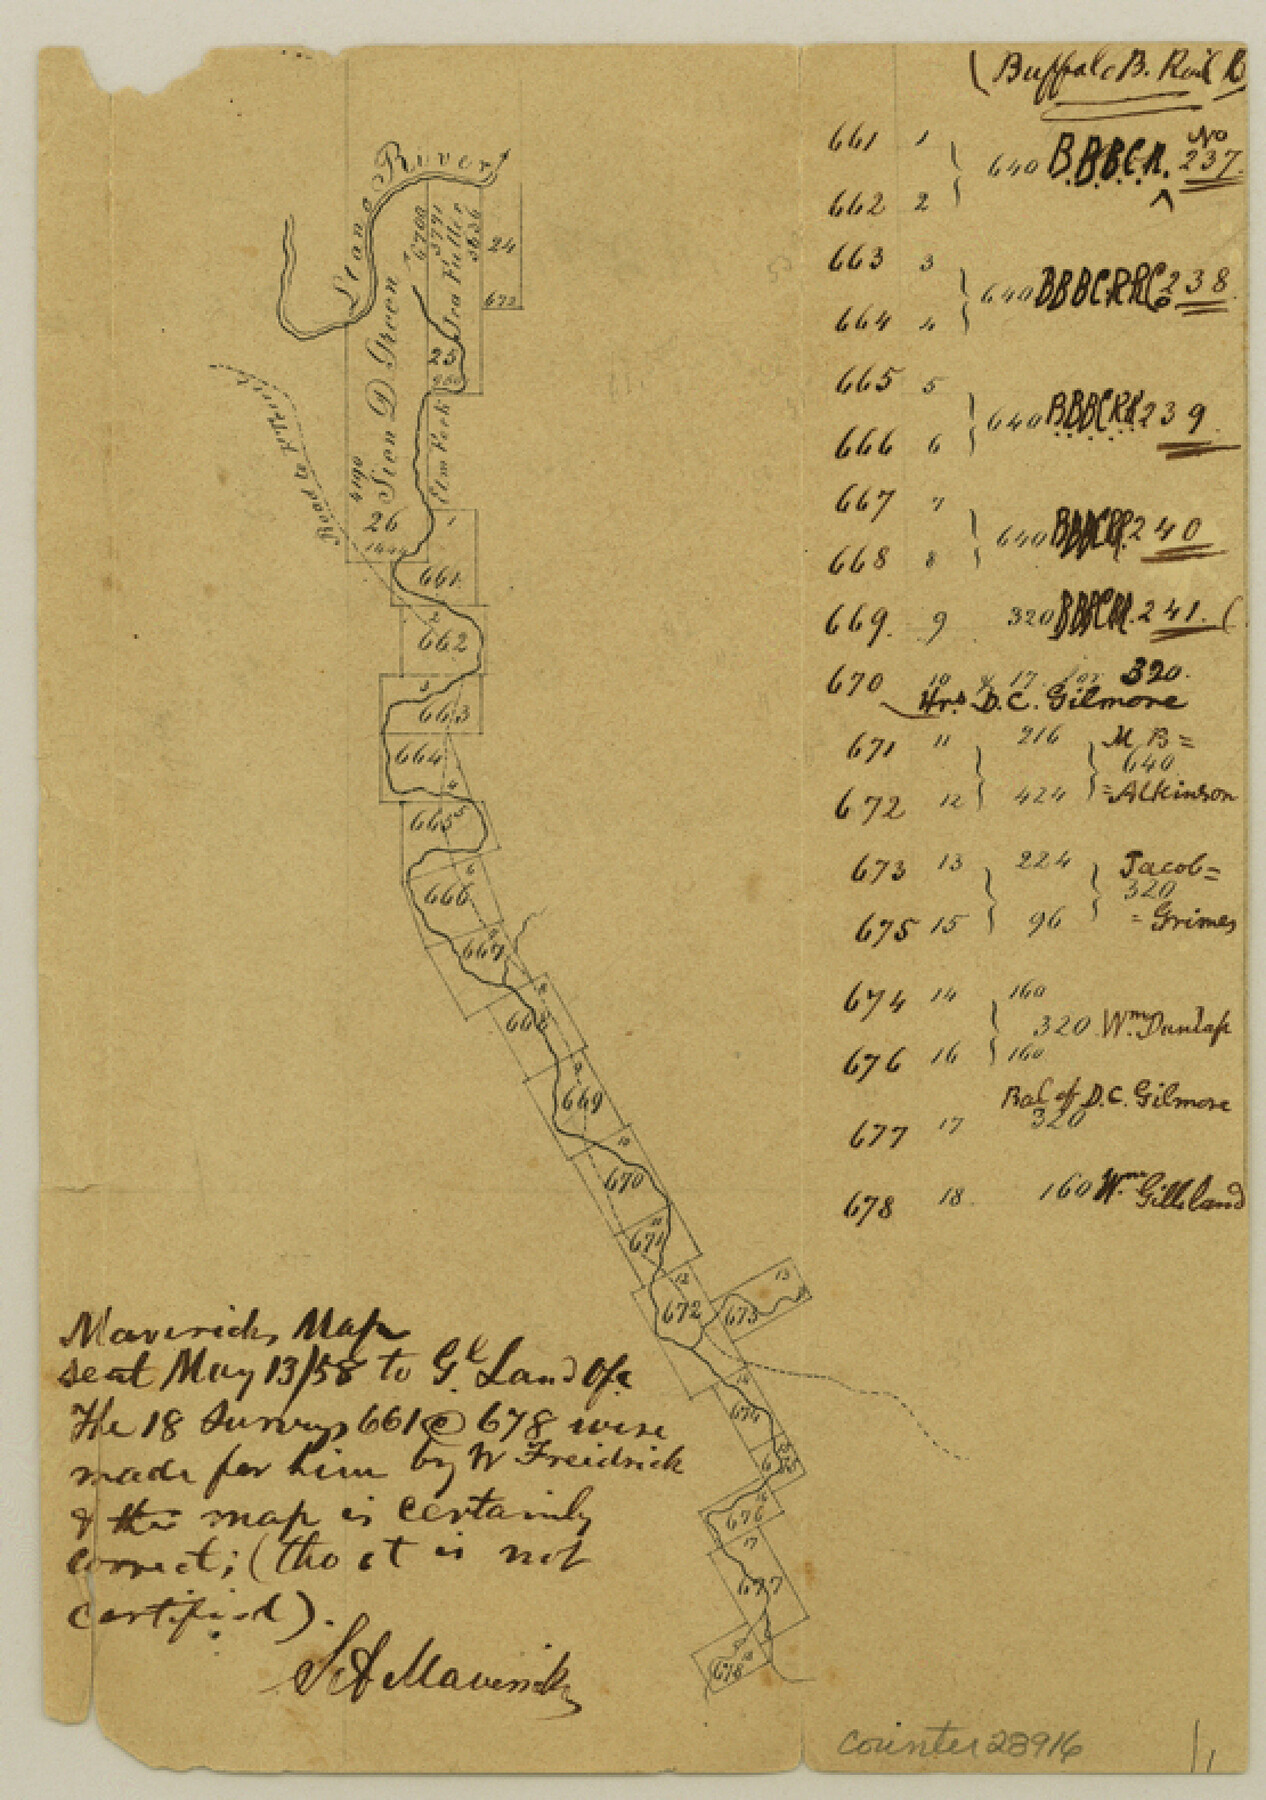 (Buffalo B. Rail R
661 1
640 B.B.B.C.R. No 237
662 2
663 3
640 BBBCRRCo 238
664 4
665 5
640 BBBCRR 239
666 6
667 7
640 BBBCRR. 240
668 8
669. 9 320 BBBCRR. 241. (
670 10 & 17 for 320.
Hrs D.C. Gilmore
671 11 216 M B=
640
672 12 424 =Atkinson
673 13 224 Jacob=
320
675 15 96 =Grimes
674 14 160
320 Wm Dunlap
676 16 160
Bal of D.C. Gilmore
677 17 320
678 18 160 Wm Gilleland
Llano River
6708
3791
Ira Fuller
3636
24
672
Sion D Green
25
960
Elm Fork
4190
26
1444
Road to
1
661
2
662
3
663
664
4
665 5
6
666
667
668
9
669
10
670
11
671
12
672
13
673
14
674
6
15
16
676
17
677
678 18
Mavericks Map
sent May 13/58 to Gl. Land Ofc
The 18 Surveys 661 @ 678 were
made for him by W Freidrick
& the map is certainly
correct; (tho it is not
certified).
S A Maverick
counter 28916